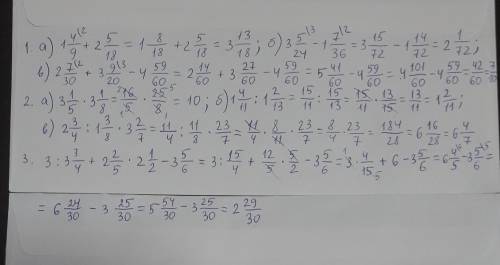 1. а) 1 4/9 \2 + 2 5/18 = 1 8/18 + 2 5/18 = 3 13/18; б) 3 5/24 \3 - 1 7/36 \2 = 3 15/72 - 1 14/72 = 2 1/72;
в) 2 7/30 \2 + 3 9/20 \3 - 4 59/60 = 2 14/60 + 3 27/60 - 4 59/60 = 5 41/60 - 4 59/60 = 4 101/60 - 4 59/60 = 42/60 = 7/10
2. а) 3 1/5 · 3 1/8 = 16/5 · 25/8 = 10; б) 1 4/11 : 1 2/13 = 15/11 : 15/13 = 15/11 · 13/15 = 13/11 = 1 2/11;
в) 2 3/4 : 1 3/8 · 3 2/7 = 11/4 : 11/8 · 23/7 = 11/4 · 8/11 · 23/7 = 8/4 · 23/7 = 184/28 = 6 16/28 = 6 4/7
3. 3 : 3 3/4 + 2 2/5 · 2 1/2 - 3 5/6 = 3 : 15/4 + 12/5 · 5/2 - 3 5/6 = 3 · 4/15 + 6 - 3 5/6 = 6 4/5 \6 - 3 5/6 \5 =
= 6 24/30 - 3 25/30 = 5 54/30 - 3 25/30 = 2 29/30